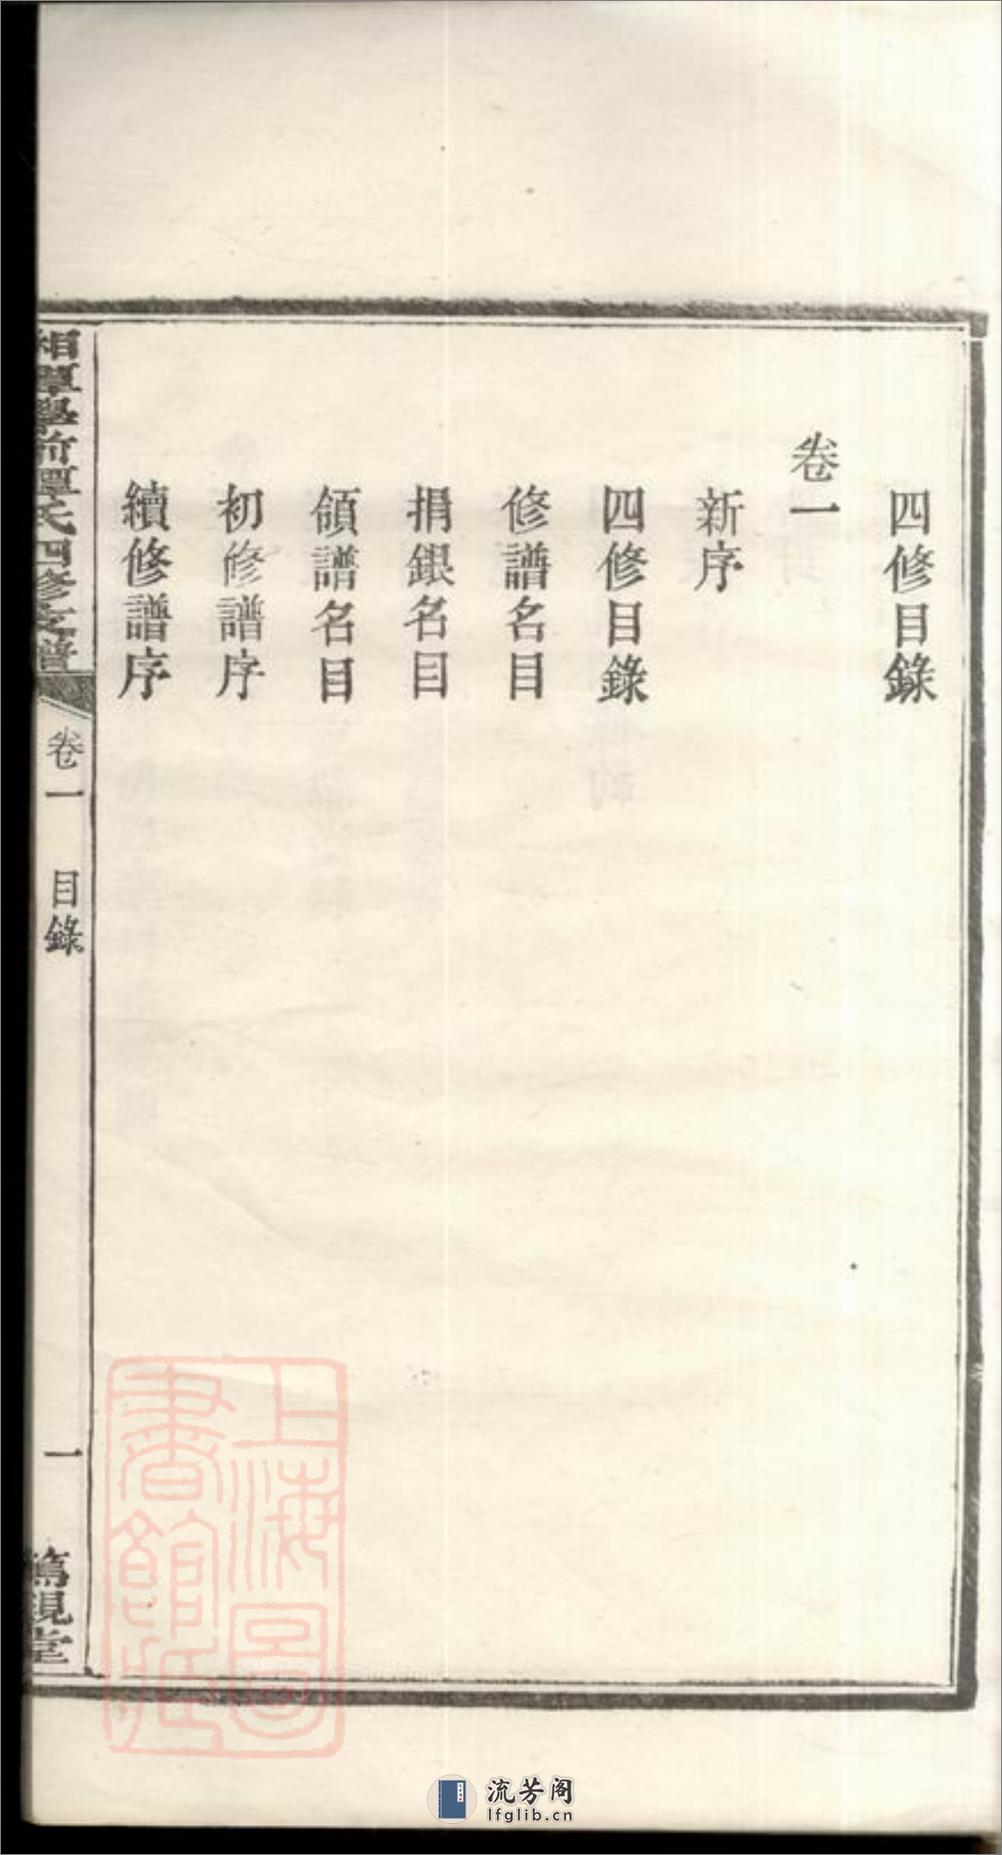 四修目錄
卷一
新序
四修目錄
修譜名目
捐銀名目
領譜名目
初修譜序
續修譜序
湘潭學前譚氏四修支譜
卷一 目錄
一
篤親堂
上海圖
書館藏
流芳阁
lfglib.cn